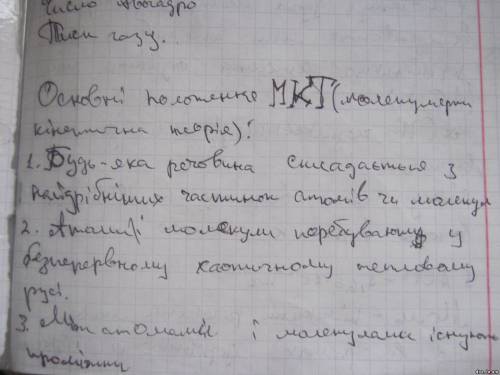 Число Авогадро
Тиск газу.
Основні положення МКТ (молекулярно
кінетична теорія):
1. Будь-яка речовина складається з
найдрібніших частинок атомів чи молекул
2. Атоми і молекули перебувають у
безперервному хаотичному тепловому
русі.
3. Між атомами і молекулами існують
проміжки